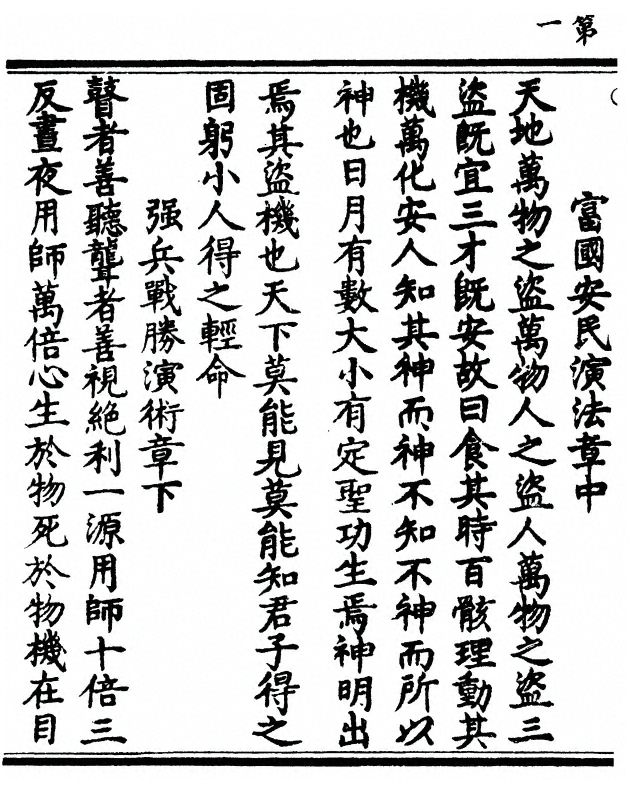 第一
富國安民演法章中
天地萬物之盜萬物人之盜人萬物之盜三
盜既宜三才既安故曰食其時百骸理動其
機萬化安人知其神而神不知不神而所以
神也日月有數大小有定聖功生焉神明出
焉其盜機也天下莫能見莫能知君子得之
固躬小人得之輕命
强兵戰勝演術章下
瞽者善聽聾者善視絶利一源用師十倍三
反晝夜用師萬倍心生於物死於物機在目